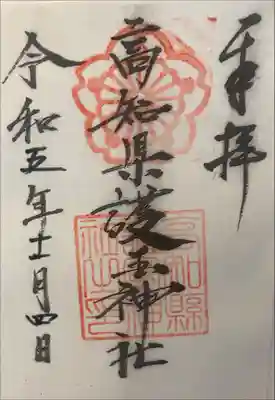 奉拝
高知県護国神社
令和五年十一月四日